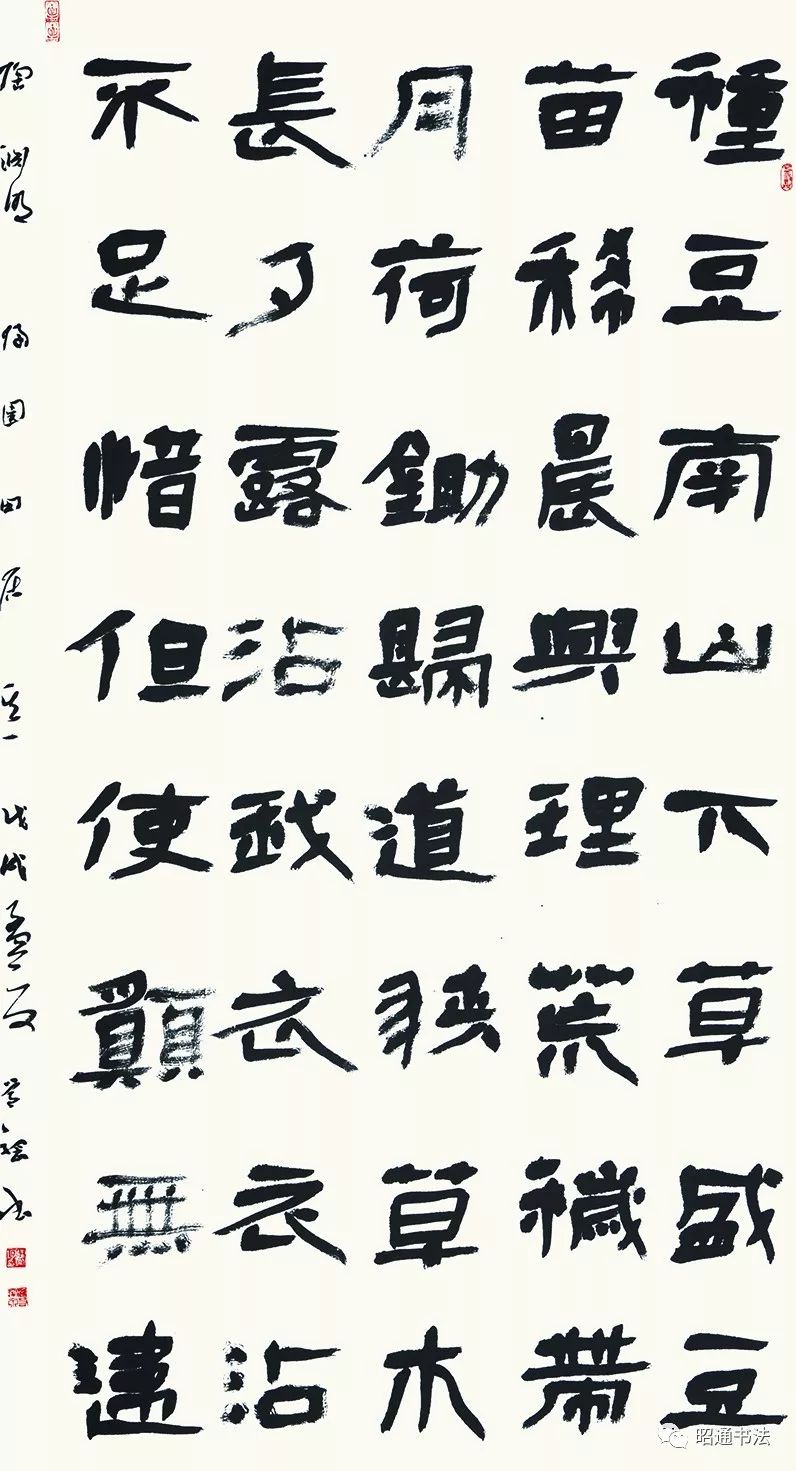 種豆南山下草盛豆
苗稀晨興理荒穢帶
月荷鋤歸道狹草木
長夕露沾我衣衣沾
不足惜但使願無違
陶淵明 歸園田居 其一 戊戌孟夏 书
昭通书法